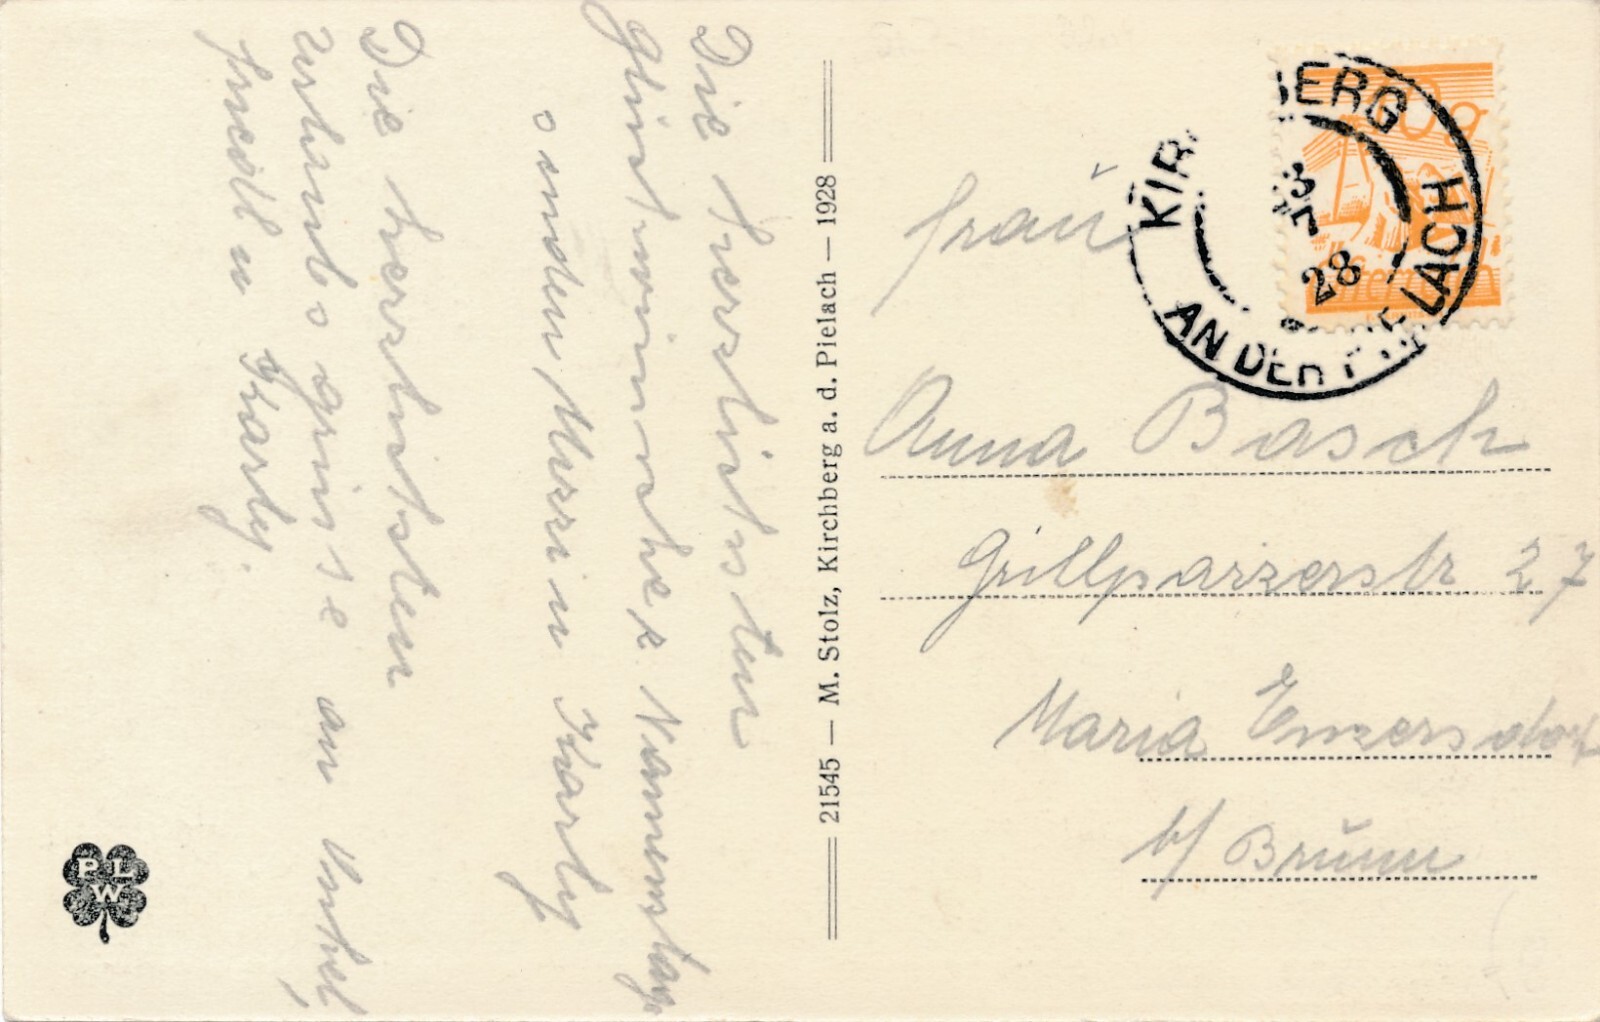 Die herzlichsten
Glückwünsche z. Namenstage
senden Mizzi u Karly
Die herzlichsten
Urlaubsgrüsse an Onkel,
Friedl u Karly.
21545 — M. Stolz, Kirchberg a. d. Pielach — 1928
PLW
KIR BERG
AN DER P LACH
3
7
28
Frau
Anna Basch
Grillparzerstr 27
Maria Enzersdorf
b/ Brünn